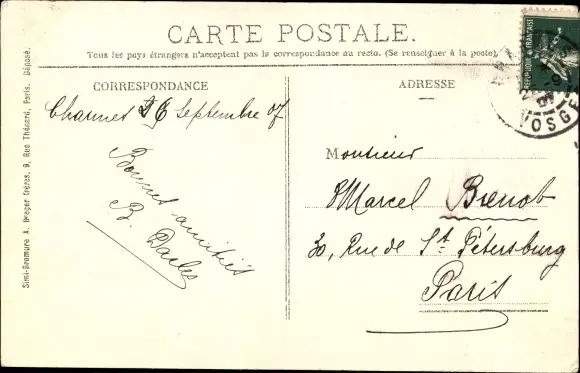 CARTE POSTALE.
Tous les pays étrangers n'acceptent pas la correspondance au recto. (Se renseigner à la poste)
CORRESPONDANCE
Charmes 26 Septembre 07
Bonnes amitiés
B. Darles
ADRESSE
Monsieur
Marcel Brenot
30, Rue de St. Pétersburg
Paris
REPUBLIQUE FRANÇAISE
VOSGES
Simi-Bromure A. Breger frères, 9, Rue Thénard, Paris. Déposé.